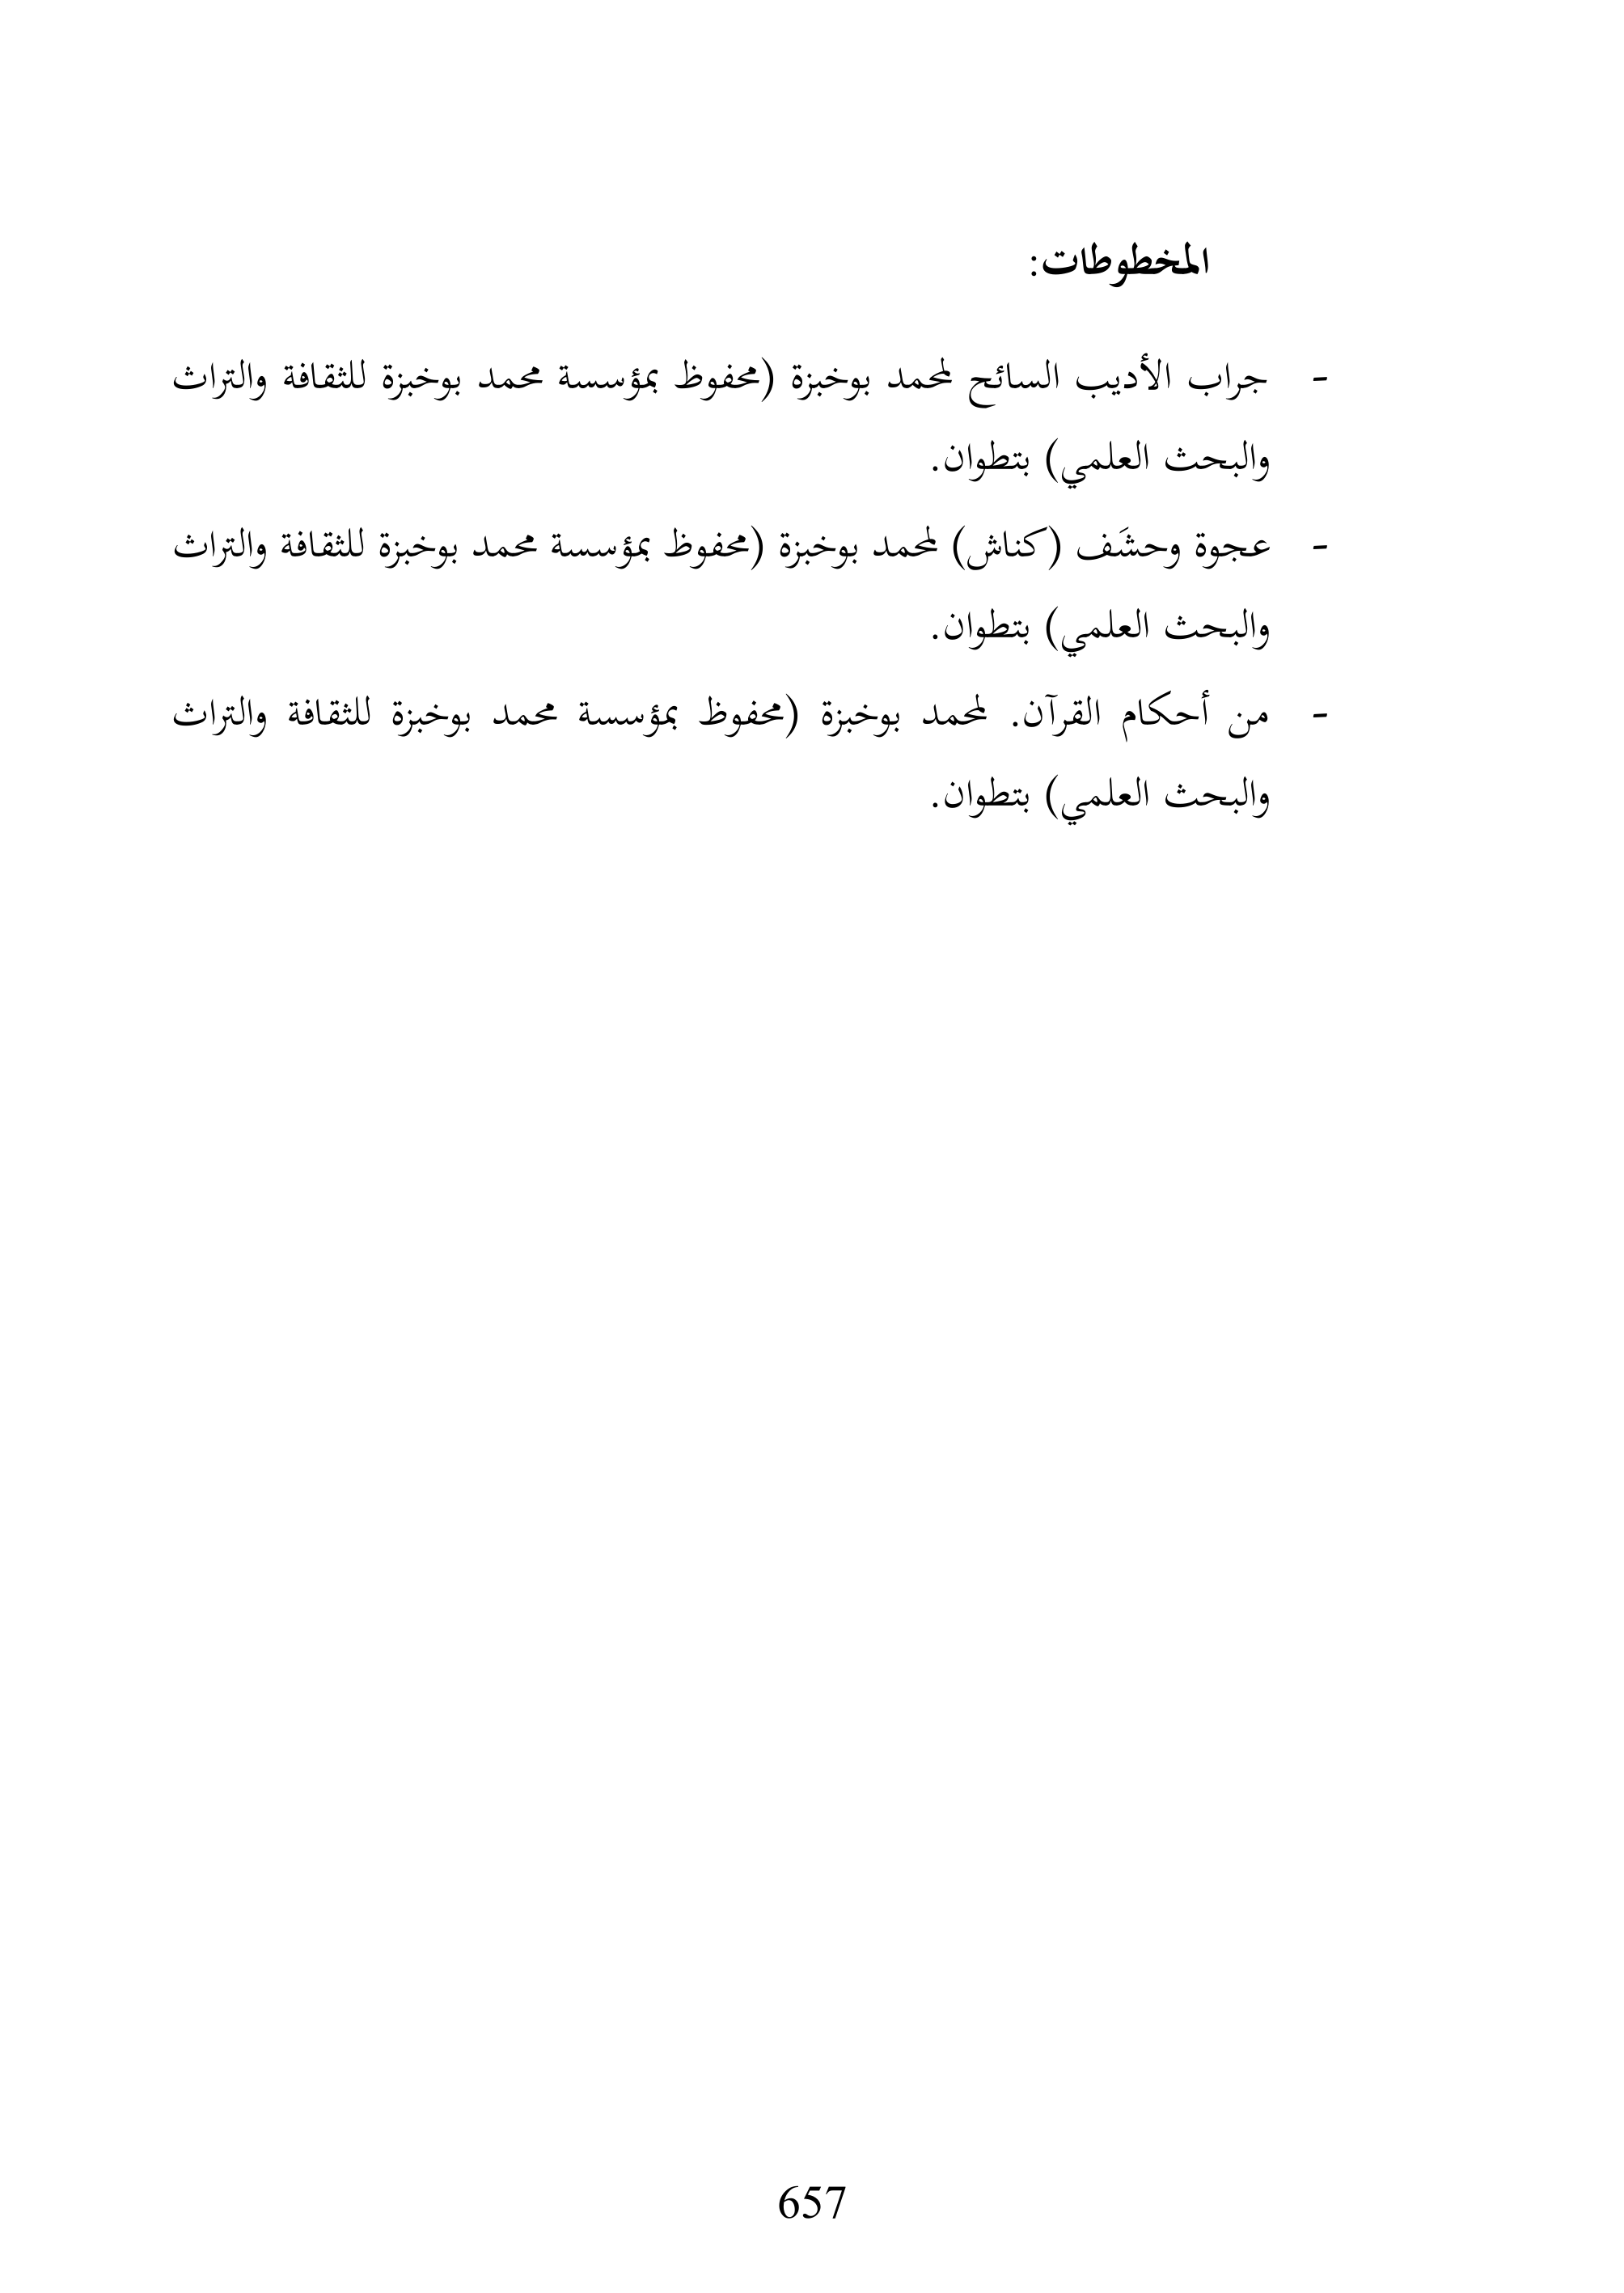 المخطوطات:
- جراب الأديب السائح لمحمد بوخبزة (محفوظ بمؤسسة محمد بوخبزة للثقافة والتراث
والبحث العلمي) بتطوان.
- عجوة وحشَف (كناش) لمحمد بوخبزة (محفوظ بمؤسسة محمد بوخبزة للثقافة والتراث
والبحث العلمي) بتطوان.
- من أحكام القرآن. لمحمد بوخبزة (محفوظ بمؤسسة محمد بوخبزة للثقافة والتراث
والبحث العلمي) بتطوان.
657